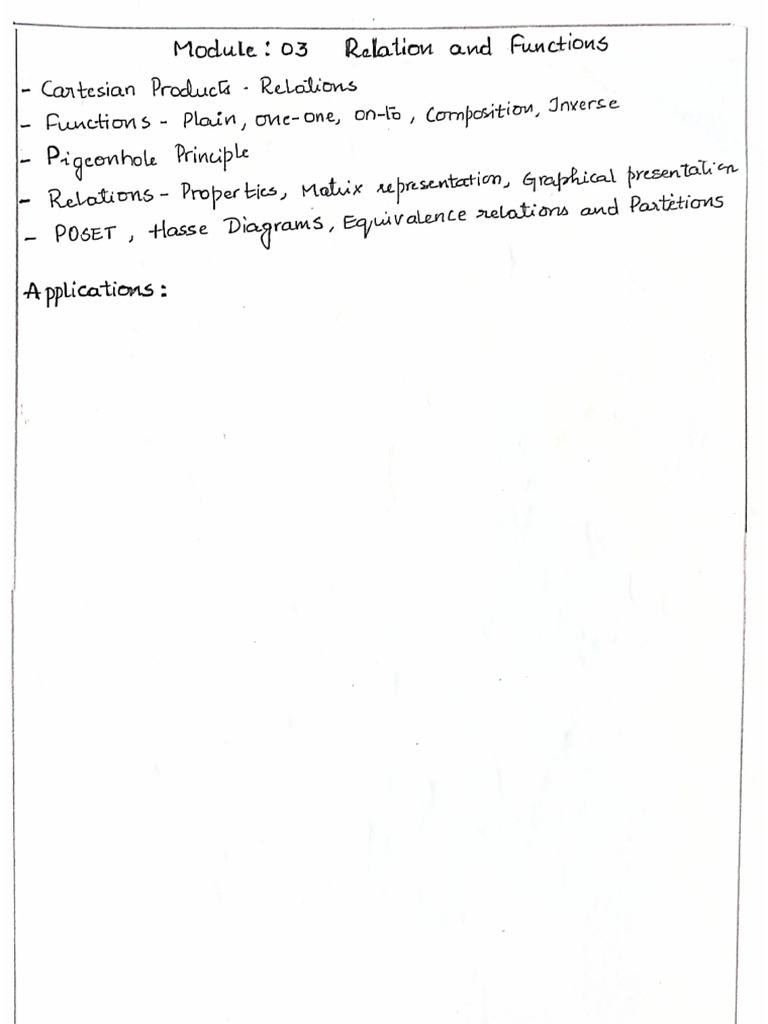 Module : 03 Relation and Functions
- Cartesian Products - Relations
- Functions - Plain, one-one, on-to, Composition, Inverse
- Pigeonhole Principle
- Relations - Properties, Matrix representation, Graphical presentation
- POSET, Hasse Diagrams, Equivalence relations and Partitions
Applications :